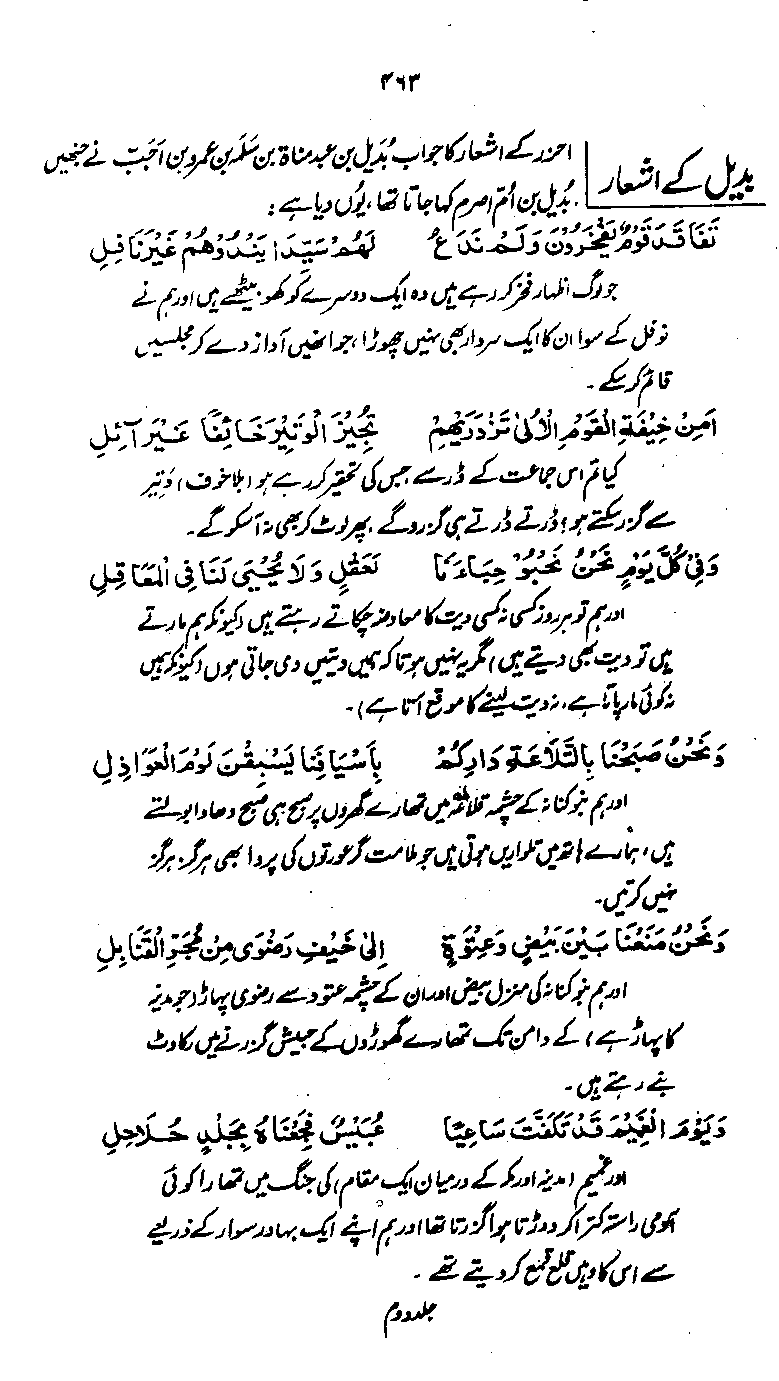 ۴۶۳
بدیل کے اشعار
احزر کے اشعار کا جواب بُدَیل بن عبد مناۃ بن سَلَمہ بن عمرو بن اَجَبّ نے جنھیں
بُدَیل بن اُمّ اصرم کہا جاتا تھا، یُوں دیا ہے :
تَفَاقَدَ قَوْمٌ یَفْخَرُوْنَ وَلَمْ نَدَعْ لَهُمْ سَیِّدًا یَنْدُوْهُمْ غَیْرَ نَافِلِ
جو لوگ اظہار فخر کر رہے ہیں وہ ایک دوسرے کو کھو بیٹھے ہیں اور ہم نے
نوفل کے سوا ان کا ایک سردار بھی نہیں چھوڑا، جو انھیں آواز دے کر مجلسیں
قائم کر سکے ۔
اَمِنْ خِیْفَةِ الْقَوْمِ الْاُلٰی تَزْدَرِیْهِمْ تُجِیْزُ الْوَتِیْرَ خَائِفًا غَیْرَ آئِلِ
کیا تم اس جماعت کے ڈر سے جس کی تحقیر کر رہے ہو (بلا خوف) وَتِیر
سے گزر سکتے ہو؛ ڈرتے ڈرتے ہی گزرو گے ، پھر لوٹ کر بھی نہ آ سکو گے ۔
وَفِیْ کُلِّ یَوْمٍ نَحْنُ نَحْبُوْ حِبَاءَنَا لَعَقْلٍ وَلَا یُحْبٰی لَنَا فِی الْمَعَاقِلِ
اور ہم تو ہر روز کسی نہ کسی دیت کا معاوضہ چکاتے رہتے ہیں (کیونکر ہم مارتے
ہیں تو دیت بھی دیتے ہیں) مگر یہ نہیں ہوتا کہ ہمیں دیتیں دی جاتی ہوں (کیونکر ہمیں
نہ کوئی مار پاتا ہے، نہ دیت لینے کا موقع آتا ہے) ۔
وَنَحْنُ صَبَحْنَا بِالتَّلَاعَةِ دَارَکُمْ بِاَسْیَافِنَا یَسْبِقْنَ لَوْمَ الْعَوَاذِلِ
اور ہم بنو کنانہ کے چشمہ تلاعۃ میں تمھارے گھروں پر صبح ہی صبح دھاوا بولتے
ہیں، ہمارے ہاتھ میں تلواریں ہوتی ہیں جو ملامت گر عورتوں کی پروا بھی ہرگز ہرگز
نہیں کرتیں ۔
وَنَحْنُ مَنَعْنَا بَیْنَ بَیْضٍ وَعِتْوَةٍ اِلٰی خَیْفِ رَضْوٰی مِنْ مُجَرِّ الْقَنَابِلِ
اور ہم بنو کنانہ کی منزل بیض اور ان کے چشمہ عتود سے رضوی پہاڑ (جو مدینہ
کا پہاڑ ہے) کے دامن تک تمھارے گھوڑوں کے جیش گزرنے میں رکاوٹ
بنے رہتے ہیں ۔
وَیَوْمَ الْغَمِیْمِ قَدْ تَکَفَّتَ سَاعِیًا عُبَیْسٌ فَجَعْنَاهُ بِجَلْدٍ حُلَاحِلِ
اور غمیم (مدینہ اور مکہ کے درمیان ایک مقام) کی جنگ میں تمھارا کوئی
آدمی راستہ کترا کر دوڑتا ہوا گزرتا تھا اور ہم اپنے ایک بہادر سوار کے ذریعے
سے اس کا وہیں قلع قمع کر دیتے تھے ۔
جلد دوم